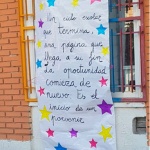 Un ciclo escolar
que termina,
una página que
llega a su fin
La oportunidad
comienza de
nuevo. Es el
inicio de un
porvenir